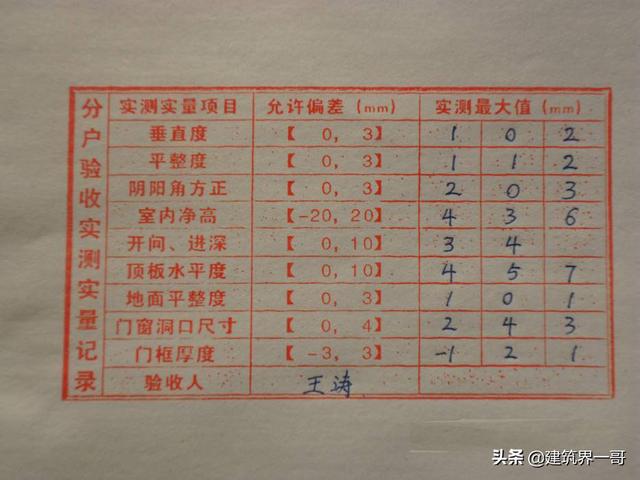 分户验收实测实量记录
实测实量项目 允许偏差(mm) 实测最大值(mm)
垂直度 【 0, 3】 1 0 2
平整度 【 0, 3】 1 1 2
阴阳角方正 【 0, 3】 2 0 3
室内净高 【-20, 20】 4 3 6
开间、进深 【 0, 10】 3 4
顶板水平度 【 0, 10】 4 5 7
地面平整度 【 0, 3】 1 0 1
门窗洞口尺寸 【 0, 4】 2 4 3
门框厚度 【 -3, 3】 -1 2 1
验收人 王涛
头条 @建筑界一哥